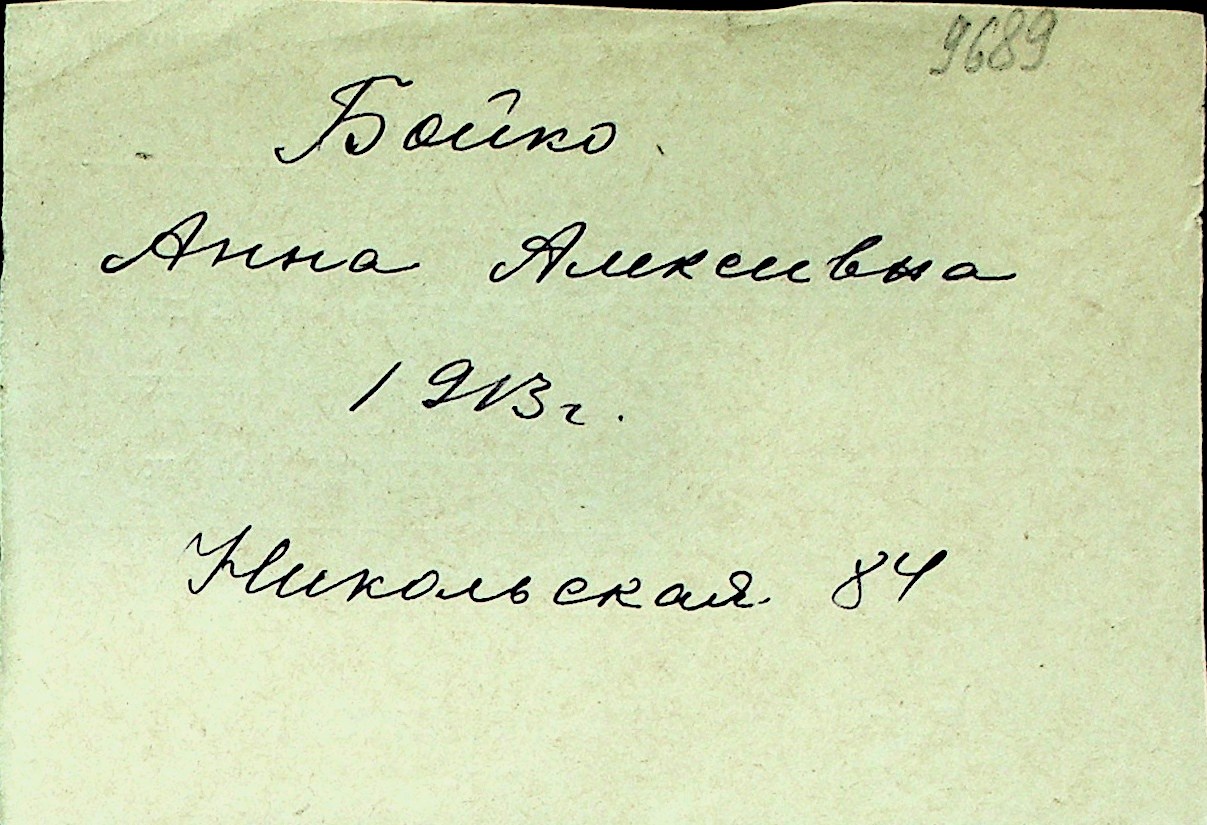 9689
Бойко
Анна Алексивна
1913г.
Никольская 84